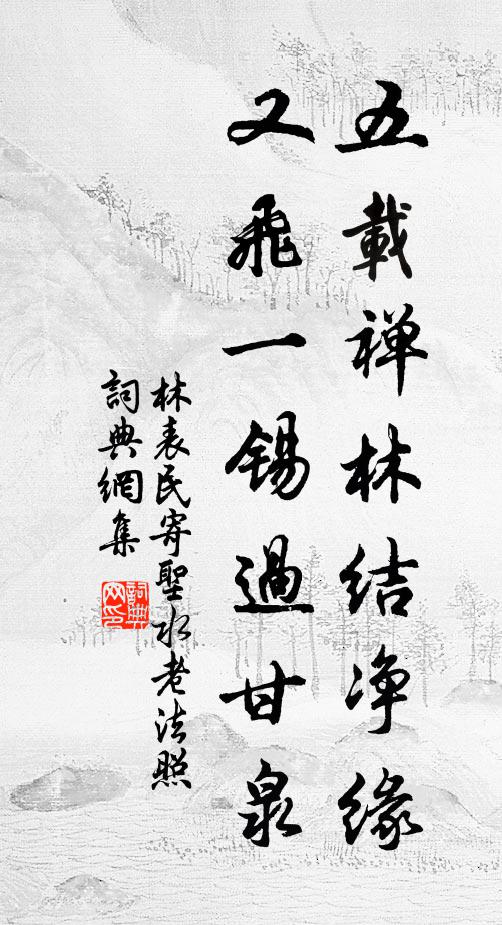 五載禅林結净緣
又飛一錫過甘泉
林表民寄聖水老法照
詞典網集
詞典網印